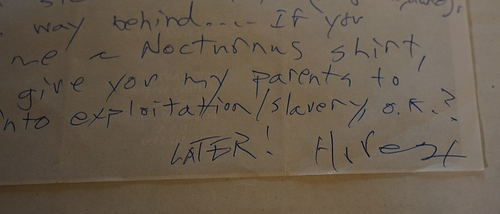 way behind.... If you
me a Nocturnus shirt,
give you my parents to
nto exploitation/slavery, o.k.?
LATER!